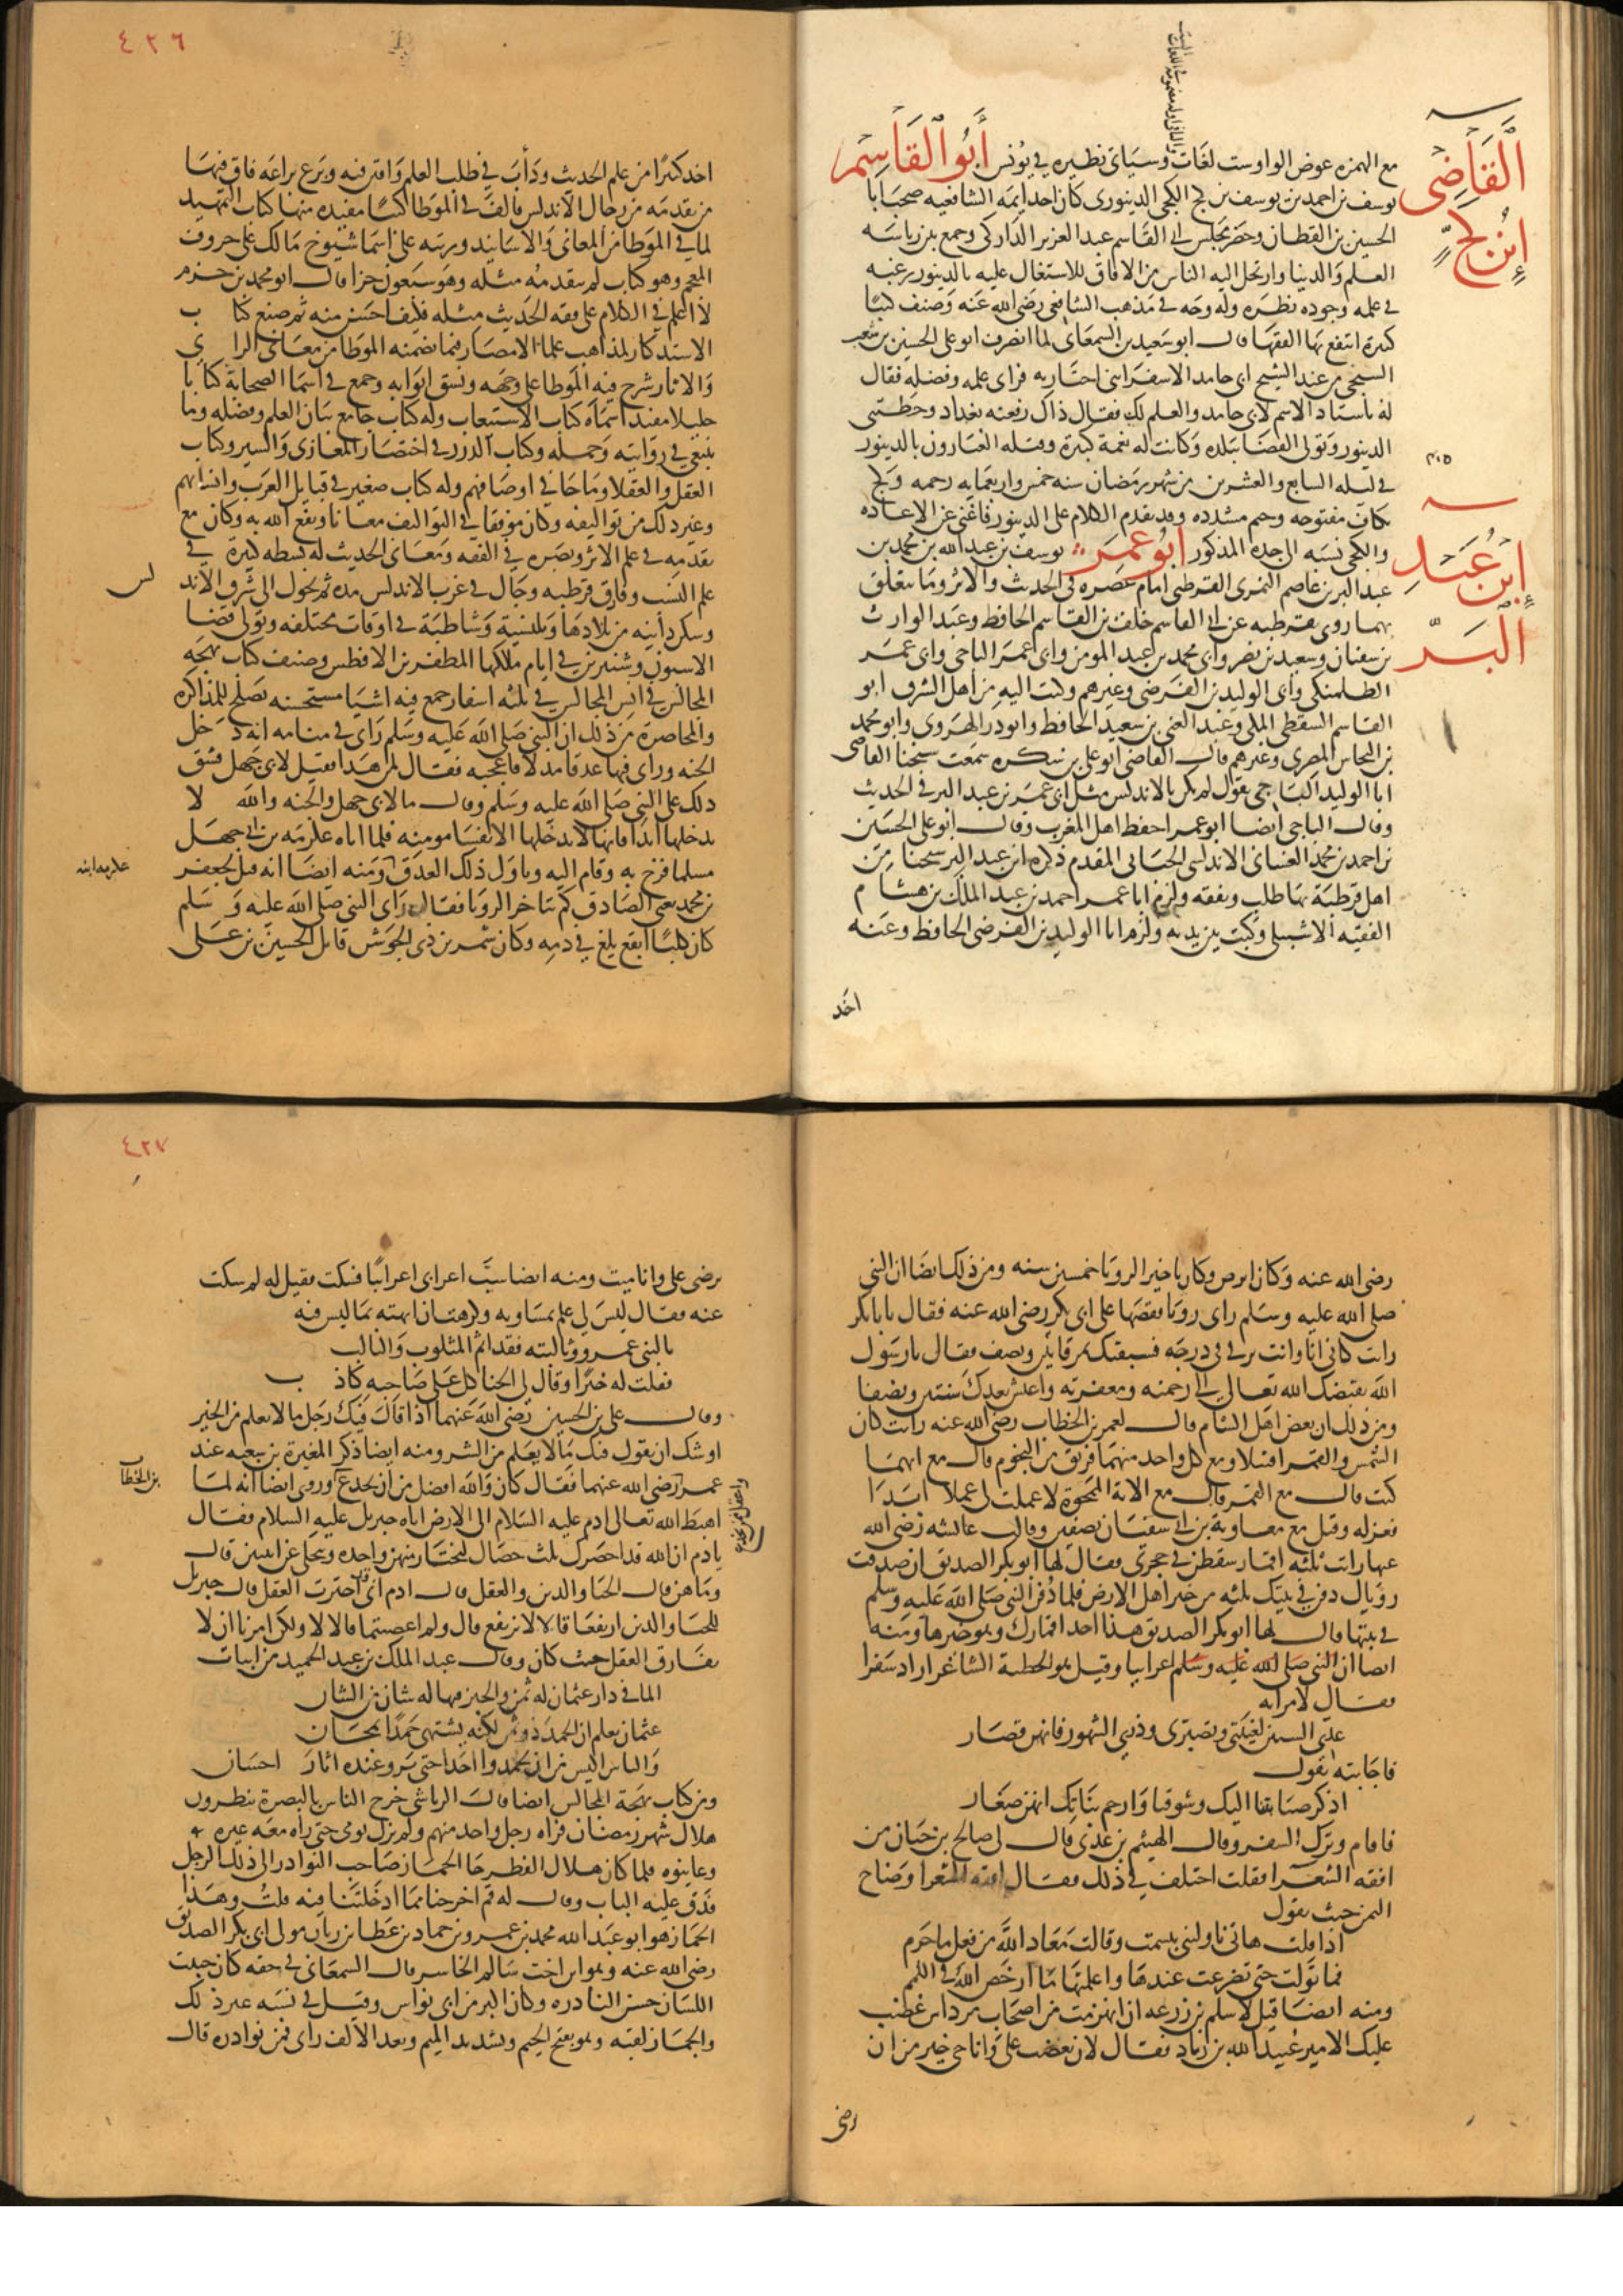 مع الهمزه عوض الواو ست لغات وسياتى نظيره فى يونس أبو القاسم
القاضى
ابن كج
يوسف بن احمد بن يوسف بن كج الكجى الدينورى كان احد ايمه الشافعيه صحب ابا
الحسين بن القطان وحضر مجلس ابى القاسم عبد العزيز الداركى وجمع بين رياسه
العلم والدنيا وارتحل اليه الناس من الافاق للاشتغال عليه بالدينور رغبه
فى علمه وجوده نظره وله وجه فى مذهب الشافعى رضى الله عنه وصنف كتبا
كثيرة انتفع بها الفقها قال ابو سعيد بن السمعانى لما انصرف ابو على الحسين بن شعيب
السنجى من عند الشيخ ابى حامد الاسفراينى اجتاز به فراى علمه وفضله فقال
له يا استاد الاسم لابى حامد والعلم لك فقال ذاك رفعته بغداد وحطتنى
الدينور وتولى القضا ببلده وكانت له نعمة كبيرة وقتله العيارون بالدينور
٤٠٥
فى ليله السابع والعشرين من شهر رمضان سنه خمس واربعمايه رحمه وكج
بكاف مفتوحه وجيم مشدده وقد تقدم الكلام على الدينور فاغنى عن الاعاده
والكجى نسبه الى جده المذكور أبو عمر يوسف بن عبد الله بن محمد بن
ابن عبد
البر
عبد البر بن عاصم النمرى القرطبى امام عصره فى الحديث والاثر وما يتعلق
بهما روى بقرطبه عن ابى القاسم خلف بن القاسم الحافظ وعبد الوارث
بن سفيان وسعيد بن نصر وابى محمد بن عبد المومن وابى عمر الباجى وابى عمر
الطلمنكى وابى الوليد بن الفرضى وغيرهم وكتب اليه من اهل الشرق ابو
القاسم السقطى المكى وعبد الغنى بن سعيد الحافظ وابو ذر الهروى وابو محمد
بن النحاس المصرى وغيرهم قال القاضى ابو على بن سكره سمعت شيخنا القاضى
ابا الوليد الباجى يقول لم يكن بالاندلس مثل ابى عمر بن عبد البر فى الحديث
وقال الباجى ايضا ابو عمر احفظ اهل المغرب وقال ابو على الحسين
بن احمد بن محمد الغسانى الاندلسى الجيانى المقدم ذكره ابن عبد البر شيخنا من
اهل قرطبة بها طلب وتفقه ولزم ابا عمر احمد بن عبد الملك بن هشام
الفقيه الاشبيلى وكتب بين يديه ولزم ابا الوليد بن الفرضى الحافظ وعنه
اخد
٤٢٦
اخد كثيرا من علم الحديث ودأب فى طلب العلم وافتى فيه وبرع براعه فاق فيها
من تقدمه من رجال الاندلس والف فى الموطا كتبا مفيده منها كتاب التمهيد
لما فى الموطا من المعانى والاسانيد ورتبه على اسما شيوخ مالك على حروف
المعجم وهو كتاب لم يتقدمه مثله وهو سبعون جزا قال ابو محمد بن حزم
لا اعلم فى الكلام على فقه الحديث مثله فكيف احسن منه ثم صنع كتاب
الاستدكار لمذاهب علما الامصار فيما تضمنه الموطا من معانى الراى
والاثار شرح فيه الموطا على وجهه ونسق ابوابه وجمع فى اسما الصحابة كتابا
جليلا مفيدا سماه كتاب الاستيعاب وله كتاب جامع بيان العلم وفضله وما
ينبغى فى روايته وحمله وكتاب الدرر فى اختصار المغازى والسير وكتاب
العقل والعقلا وما جا فى اوصافهم وله كتاب صغير فى قبايل العرب وانسابهم
وغير ذلك من تواليفه وكان موفقا فى التواليف معانا ونفع الله به وكان مع
تقدمه فى علم الاثر وبصره فى الفقه ومعانى الحديث له بسطه كبيرة فى
علم النسب وفارق قرطبه وجال فى غرب الاندلس مده ثم تحول الى شرق الاند
لس
وسكن دانيه من بلادها وبلنسية وشاطبة فى اوقات مختلفه وتولى قضا
الاسبون وشنترين فى ايام ملكها المظفر بن الافطس وصنف كتاب بهجه
المجالس فى انس المجالس فى ثلثه اسفار جمع فيه اشيا مستحسنه تصلح للمذاكره
والمحاضرة من ذلك ان النبى صلى الله عليه وسلم راى فى منامه انه دخل
الجنه وراى فيها عدقا مدلا فاعجبه فقال لمن هدا فقيل لابى جهل فشق
ذلك على النبى صلى الله عليه وسلم وقال ما لابى جهل والجنه والله لا
يدخلها ابدا فانها لا يدخلها الا نفسا مومنه فلما اتاه عكرمه بن ابى جهل
مسلما فرح به وقام اليه وتاول ذلك العدق ومنه ايضا انه قيل لجعفر
عكرمه ابنه
بن محمد يعنى الصادق كم تتاخر الرويا فقال راى النبى صلى الله عليه وسلم
كان كلبا ابقع يلغ فى دمه وكان شمر بن ذى الجوشن قاتل الحسين بن على
رضى الله عنه وكان ابرص وكان تاخير الرويا خمسين سنه ومن ذلك ايضا ان النبى
صلى الله عليه وسلم راى رويا فقصها على ابى بكر رضى الله عنه فقال يا با بكر
رايت كانى انا وانت نرقى فى درجه فسبقتك بمرقاتين ونصف فقال يا رسول
الله يقبضك الله تعالى الى رحمته ومغفرته واعيش بعدك سنتين ونصفا
ومن ذلك ان بعض اهل الشام قال لعمر بن الخطاب رضى الله عنه رايت كان
الشمس والقمر اقتتلا ومع كل واحد منهما فريق من النجوم قال مع ايهما
كنت قال مع القمر قال مع الاية الممحوة لا عملت لى عملا ابدا
فعزله وقتل مع معاوية بن ابى سفيان بصفين وقالت عائشه رضى الله
عنها رايت ثلثه اقمار سقطن فى حجرى فقال لها ابو بكر الصديق ان صدقت
روياك دفن فى بيتك ثلثه من خير اهل الارض فلما دفن النبى صلى الله عليه وسلم
فى بيتها قال لها ابو بكر الصديق هذا احد اقمارك وهو خيرها ومنه
ايضا ان النبى صلى الله عليه وسلم اعرابيا وقيل هو الحطية الشاعر اراد سفرا
فقال لامراته
عدى السنين لغيبتى وتصبرى وذرى الشهور فانهن قصار
فاجابته تقول
اذكر صبابتنا اليك وشوقنا وارحم بناتك انهن صغار
فاقام وترك السفر وقال الهيثم بن عدى قال لى صالح بن حيان من
افقه الشعرا فقلت اختلف فى ذلك فقال افقه الشعرا وضاح
اليمن حيث يقول
اذا قلت هاتى ناولينى تبسمت وقالت معاد الله من فعل ما حرم
فما نولت حتى تضرعت عندها واعلمتها ما ارخص الله فى اللمم
ومنه ايضا قيل لاسلم بن زرعه ان انهزمت من اصحاب مرداس غضب
عليك الامير عبيد الله بن زياد فقال لان يغضب على وانا حى خير من ان
رضى
٤٢٧
يرضى على وانا ميت ومنه ايضا سب اعرابى اعرابيا فسكت فقيل له لم سكت
عنه فقال ليس لى علم بمساويه وكرهت ان ابهته بما ليس فيه
ثالبنى عمرو وثالبته فقد اثم المثلوب والثالب
فقلت له خيرا وقال لى الخنا كل على صاحبه كاذب
وقال على بن الحسين رضى الله عنهما اذا قال فيك رجل ما لا يعلم من الخير
اوشك ان يقول فيك ما لا يعلم من الشر ومنه ايضا ذكر المغيرة بن شعبه عند
عمر رضى الله عنهما فقال كان والله افضل من ان يخدع وروى ايضا انه لما
بن الخطاب
واعقل من ان يخدع
اهبط الله تعالى ادم عليه السلام الى الارض اتاه جبريل عليه السلام فقال
يا دم ان الله قد احضرك ثلث خصال لتختار منهن واحده وتخلى عن اثنين قال
وما هن قال الحيا والدين والعقل قال ادم انى قد اخترت العقل قال جبريل
للحيا والدين ارتفعا قالا لا نرتفع قال ولم اعصيتما قالا لا ولكن امرنا ان لا
نفارق العقل حيث كان وقال عبد الملك بن عبد الحميد من ابيات
الما فى دار عثمان له ثمن والخبز فيها له شان من الشان
عثمان يعلم ان الحمد ذو ثمن لكنه يشتهى حمدا بمجان
والناس اكيس من ان يحمدوا احدا حتى يروا عنده اثار احسان
ومن كتاب بهجة المجالس ايضا قال الرياشى خرج الناس بالبصرة ينظرون
هلال شهر رمضان فراه رجل واحد منهم ولم يزل يومى حتى راه معه غيره
وعاينوه فلما كان هلال الفطر جا الجماز صاحب النوادر الى ذلك الرجل
فدق عليه الباب وقال له قم اخرجنا مما ادخلتنا فيه قلت وهذا
الجماز هو ابو عبد الله محمد بن عمرو بن حماد بن عطا بن ريان مولى ابى بكر الصديق
رضى الله عنه وهو ابن اخت سالم الخاسر قال السمعانى فى حقه كان خبيث
اللسان حسن النادره وكان اكبر من ابى نواس وقيل فى نسبه غير ذلك
والجماز لقبه وهو بفتح الجيم وتشديد الميم وبعد الالف زاى فمن نوادره قال